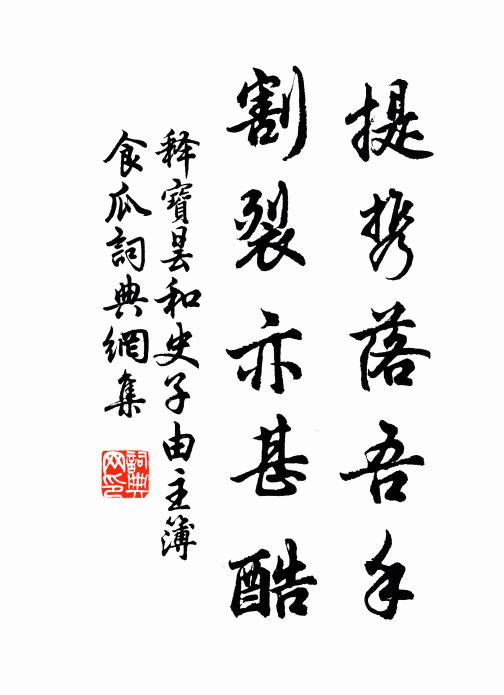 提携落吾手
割裂亦甚酷
释寶曇和史子由主簿
食瓜詞典網集
詞典網印